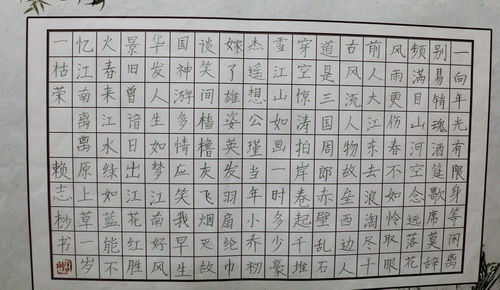 一向年光有限身等闲离
别易销魂酒筵歌席莫辞
频满目山河空念远落花
风雨更伤春不如怜取眼
前人大江东去浪淘尽千
古风流人物故垒西边人
道是三国周郎赤壁乱石
穿空惊涛拍岸卷起千堆
雪江山如画一时多少豪
杰遥想公瑾当年小乔初
嫁了雄姿英发羽扇纶巾
谈笑间樯橹灰飞烟灭故
国神游多情应笑我早生
华发人生如梦江南好风
景旧曾谙日出江花红胜
火春来江水绿如蓝能不
忆江南离离原上草一岁
一枯荣 赖志书